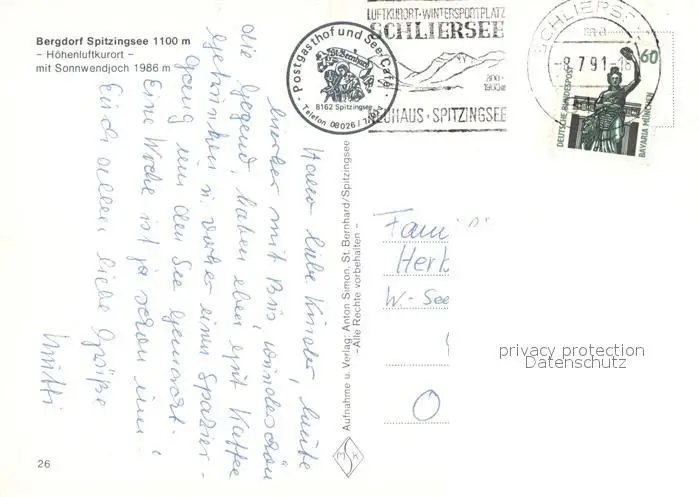 Bergdorf Spitzingsee 1100 m
– Höhenluftkurort –
mit Sonnwendjoch 1986 m
Hallo liebe Kinder, heute
hierher mit Bus, wunderschön
die Gegend, haben eben gut Kaffee
getrunken u. vorher einen Spazier-
gang um den See gemacht.
Eine Woche ist ja schon um!
Euch allen liebe Grüße
Mutti
26
Aufnahme u. Verlag: Anton Simon, St. Bernhard/Spitzingsee
–Alle Rechte vorbehalten –
Postgasthof und See-Café
St. Bernhard
8162 Spitzingsee
Telefon 08026/
LUFTKURORT·WINTERSPORTPLATZ
SCHLIERSEE
800-
1900m
NEUHAUS·SPITZINGSEE
SCHLIERSEE
-8.7.91-18
60
DEUTSCHE BUNDESPOST
BAVARIA MÜNCHEN
Fami
Herk
W.-See
O
privacy protection
Datenschutz